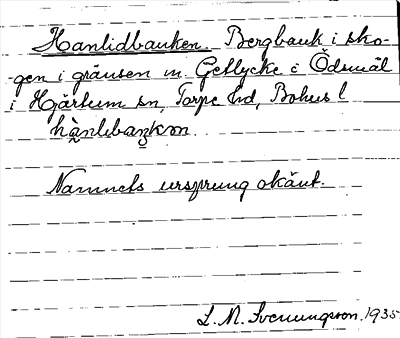 Hanlidbanken. Bergbank i sko-
gen i gränsen m. Getlycke i Ödsmål
i Hjärtum sn, Torpe hd, Bohus l
Namnets ursprung okänt.
L. M. Svenungsson. 1935